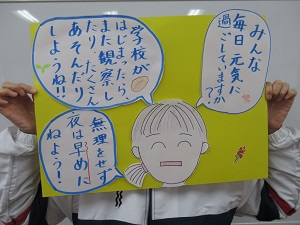 みんな
毎日元気に
過ごしていますか?
学校が
はじまったら、
また観察し
たり、たくさん
あそんだり
しようね!!
無理をせず
夜は早めに
ねよう!